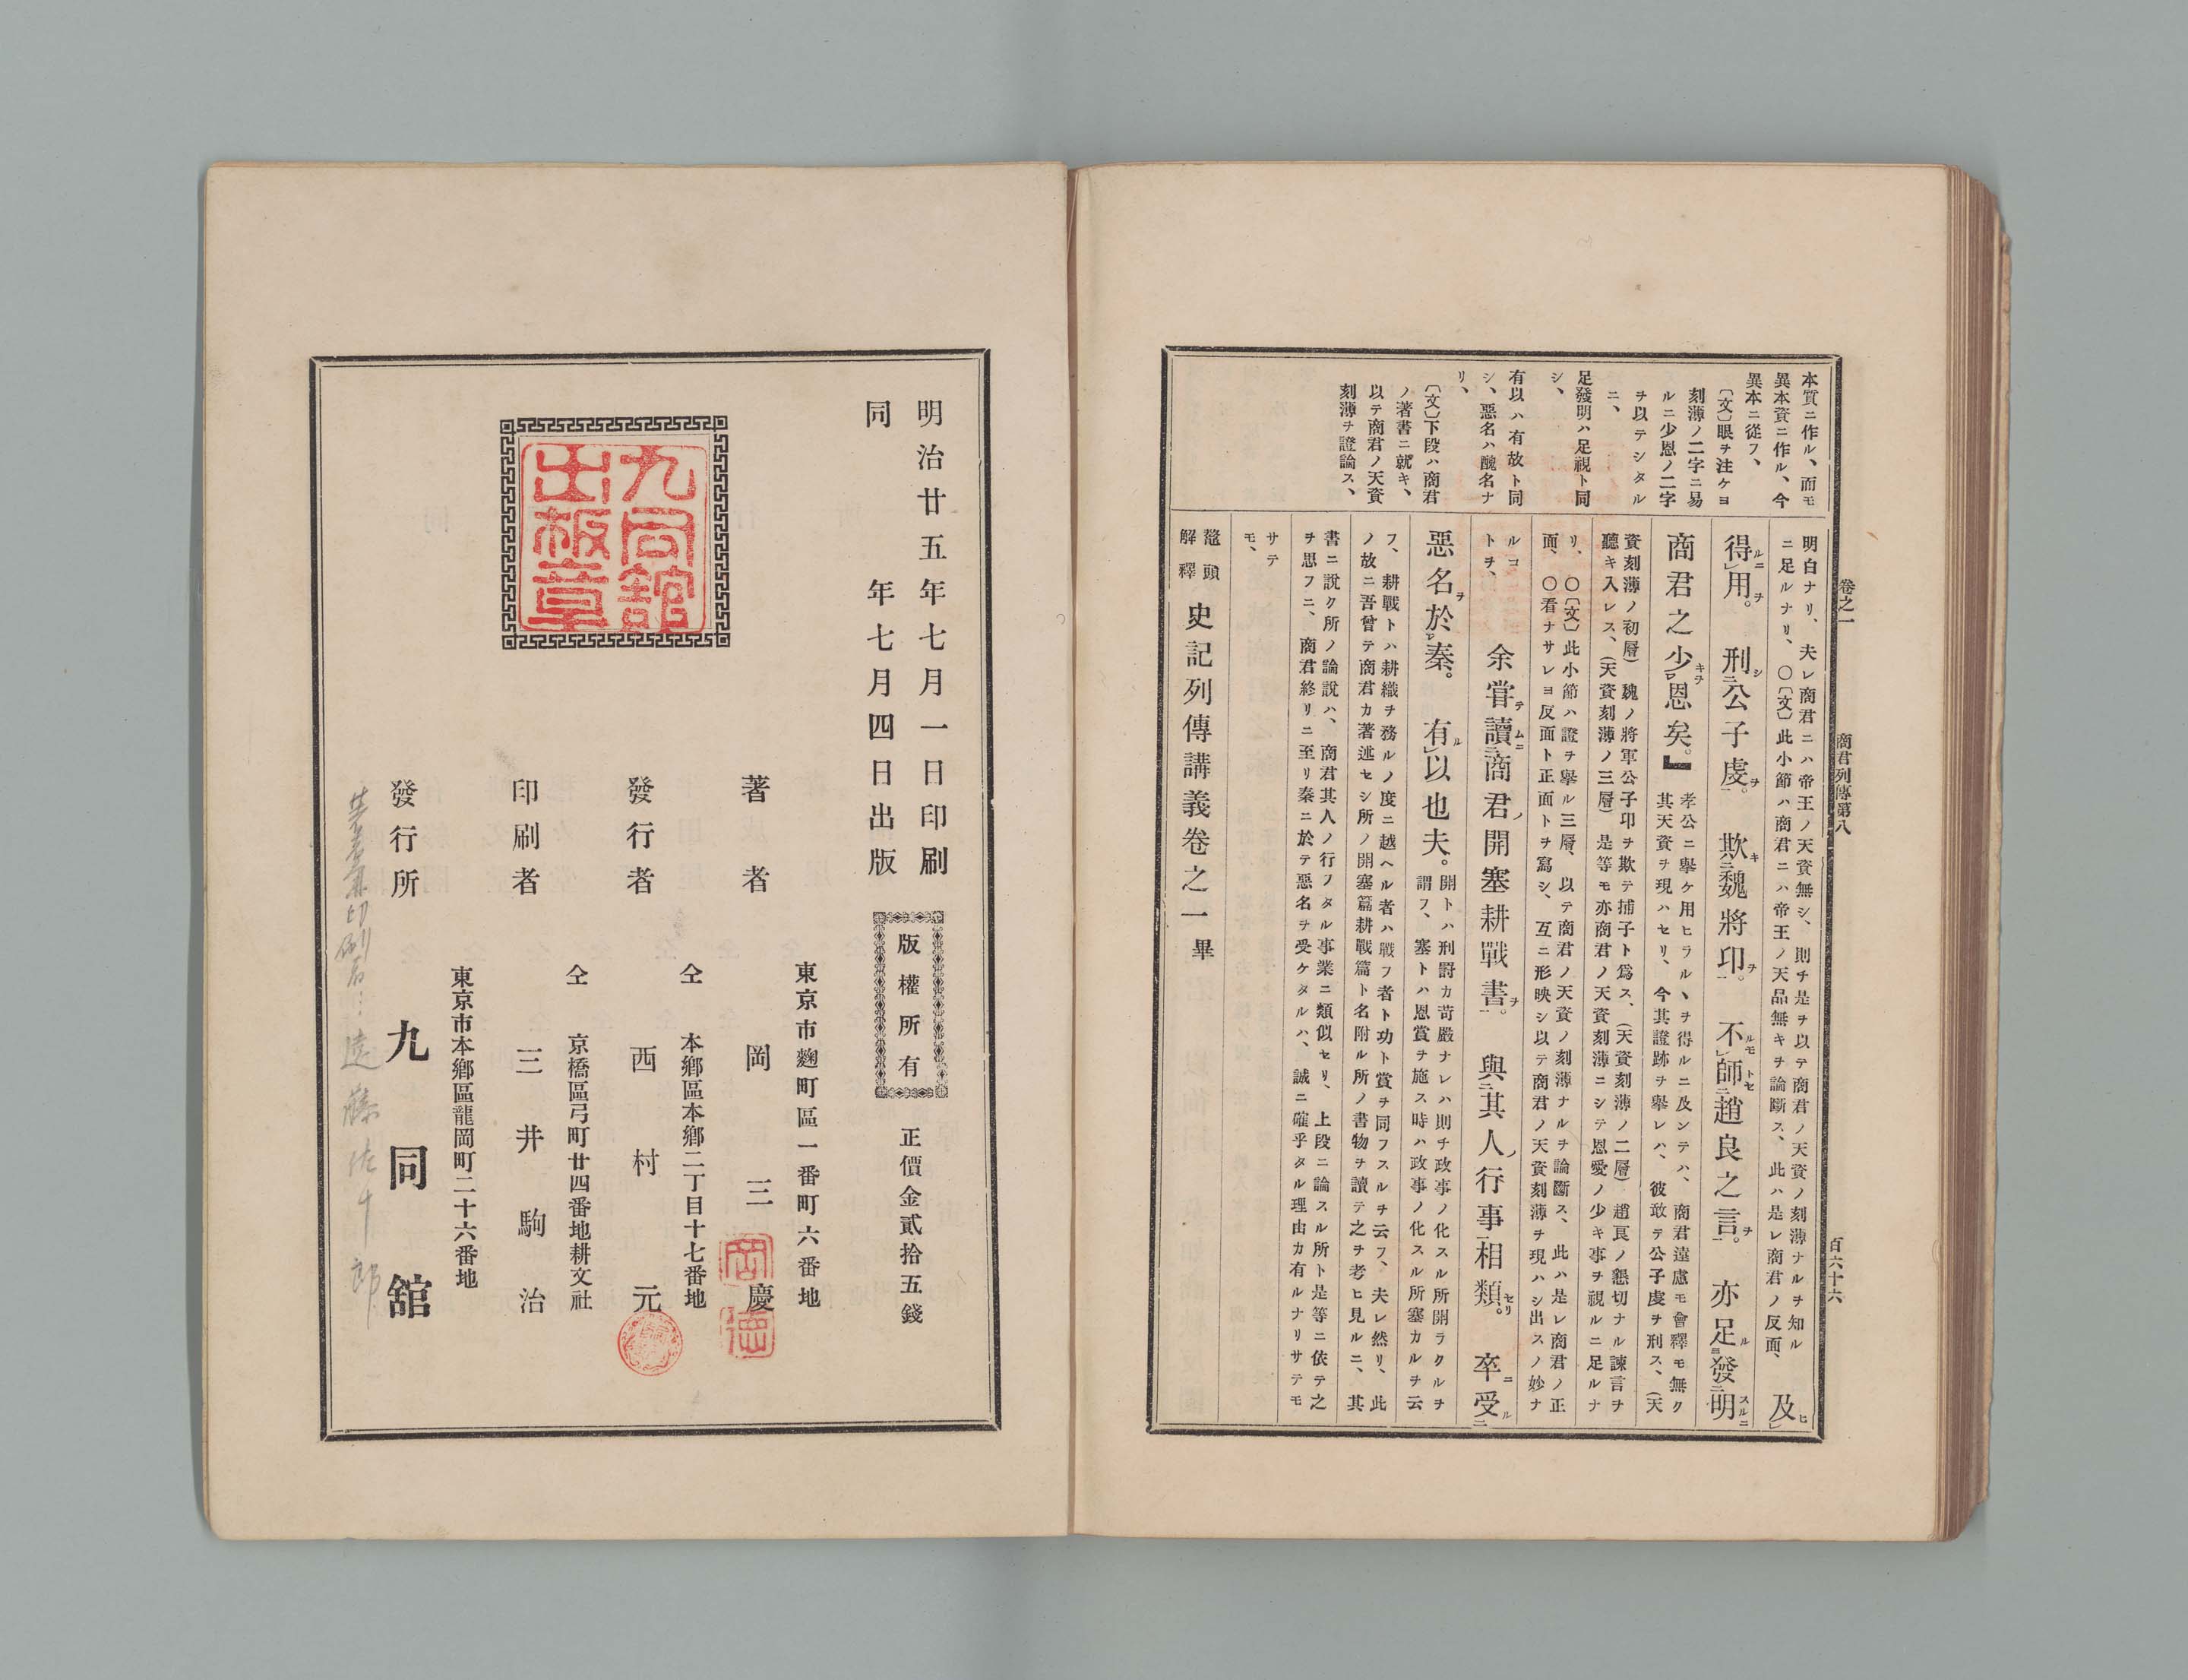 卷之一
商君列傳第八
百六十六
本質ニ作ル、而モ
異本資ニ作ル、今
異本ニ從フ、
〔文〕眼ヲ注ケヨ
刻薄ノ二字ニ易
ルニ少恩ノ二字
ヲ以テシタル
ニ、
足發明ハ足視ト同
シ、
有以ハ有故ト同
シ、惡名ハ醜名ナ
リ、
〔文〕下段ハ商君
ノ著書ニ就キ、
以テ商君ノ天資
刻薄ヲ證論ス、
明白ナリ、夫レ商君ニハ帝王ノ天資無シ、則チ是ヲ以テ商君ノ天資ノ刻薄ナルヲ知ル
ニ足ルナリ、〇〔文〕此小節ハ商君ニハ帝王ノ天品無キヲ論斷ス、此ハ是レ商君ノ反面、
及ヒ
得ルニ用ヲ。刑シ二公子虔ヲ一。欺キ二魏將印ヲ一。不ルモレ師トセ二趙良之言ヲ一。亦足ル三發二明スルニ
商君之少キヲ一レ恩矣。』
孝公ニ擧ケ用ヒラルヽヲ得ルニ及ンテハ、商君遠慮モ會釋モ無ク
其天資ヲ現ハセリ、今其證跡ヲ擧レハ、彼敢テ公子虔ヲ刑ス、(天
資刻薄ノ初層)魏ノ將軍公子印ヲ欺テ捕子ト爲ス、(天資刻薄ノ二層)趙良ノ懇切ナル諫言ヲ
聽キ入レス、(天資刻薄ノ三層)是等モ亦商君ノ天資刻薄ニシテ恩愛ノ少キ事ヲ視ルニ足ルナ
リ、〇〔文〕此小節ハ證ヲ擧ル三層、以テ商君ノ天資ノ刻薄ナルヲ論斷ス、此ハ是レ商君ノ正
面、〇看ナサレヨ反面ト正面トヲ寫シ、互ニ形映シ以テ商君ノ天資刻薄ヲ現ハシ出スノ妙ナ
ルコ
トヲ、
余嘗テ讀ムニ二商君ノ開塞耕戰書ヲ一。與二其人ノ行事一相類セリ。卒ニ受ル二
惡名ヲ於秦一。有ルレ以也夫。
開トハ刑罸カ苛嚴ナレハ則チ政事ノ化スル所開ラクルヲ
謂フ、塞トハ恩賞ヲ施ス時ハ政事ノ化スル所塞カルヲ云
フ、耕戰トハ耕織ヲ務ルノ度ニ越ヘル者ハ戰フ者ト功ト賞ヲ同フスルヲ云フ、夫レ然リ、此
ノ故ニ吾曾テ商君カ著述セシ所ノ開塞篇耕戰篇ト名附ル所ノ書物ヲ讀テ之ヲ考ヒ見ルニ、其
書ニ說ク所ノ論說ハ、商君其人ノ行フタル事業ニ類似セリ、上段ニ論スル所ト是等ニ依テ之
ヲ思フニ、商君終リニ至リ秦ニ於テ惡名ヲ受ケタルハ、誠ニ確乎タル理由カ有ルナリサテモ
サテ
モ、
鼇頭
解釋
史記列傳講義卷之一畢
明治廿五年七月一日印刷
同年七月四日出版
九同舘
出板章
版權所有
正價金貳拾五錢
東京市麴町區一番町六番地
著者 岡三慶
岡德
仝 本鄕區本鄕二丁目十七番地
發行者 西村元
仝 京橋區弓町廿四番地耕文社
印刷者 三井駒治
東京市本鄕區龍岡町二十六番地
發行所 九同舘
遠藤佐十郎